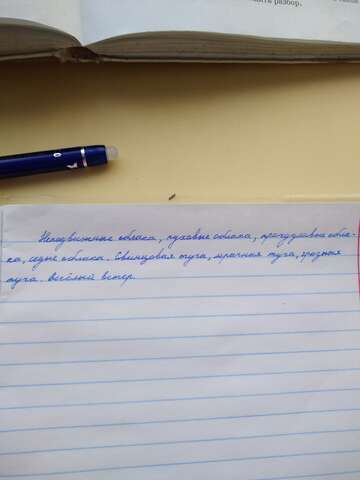 разбор.
Неподвижные облака, пуховые облака, причудливые обла-
ка, седые облака. Свинцовая туча, мрачная туча, грозная
туча. Весёлый ветер.